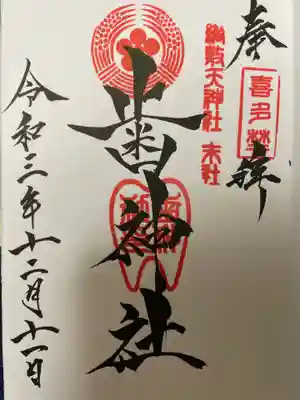 奉拝
喜多埜
綱敷天神社 末社
歯神社
令和三年十二月十一日